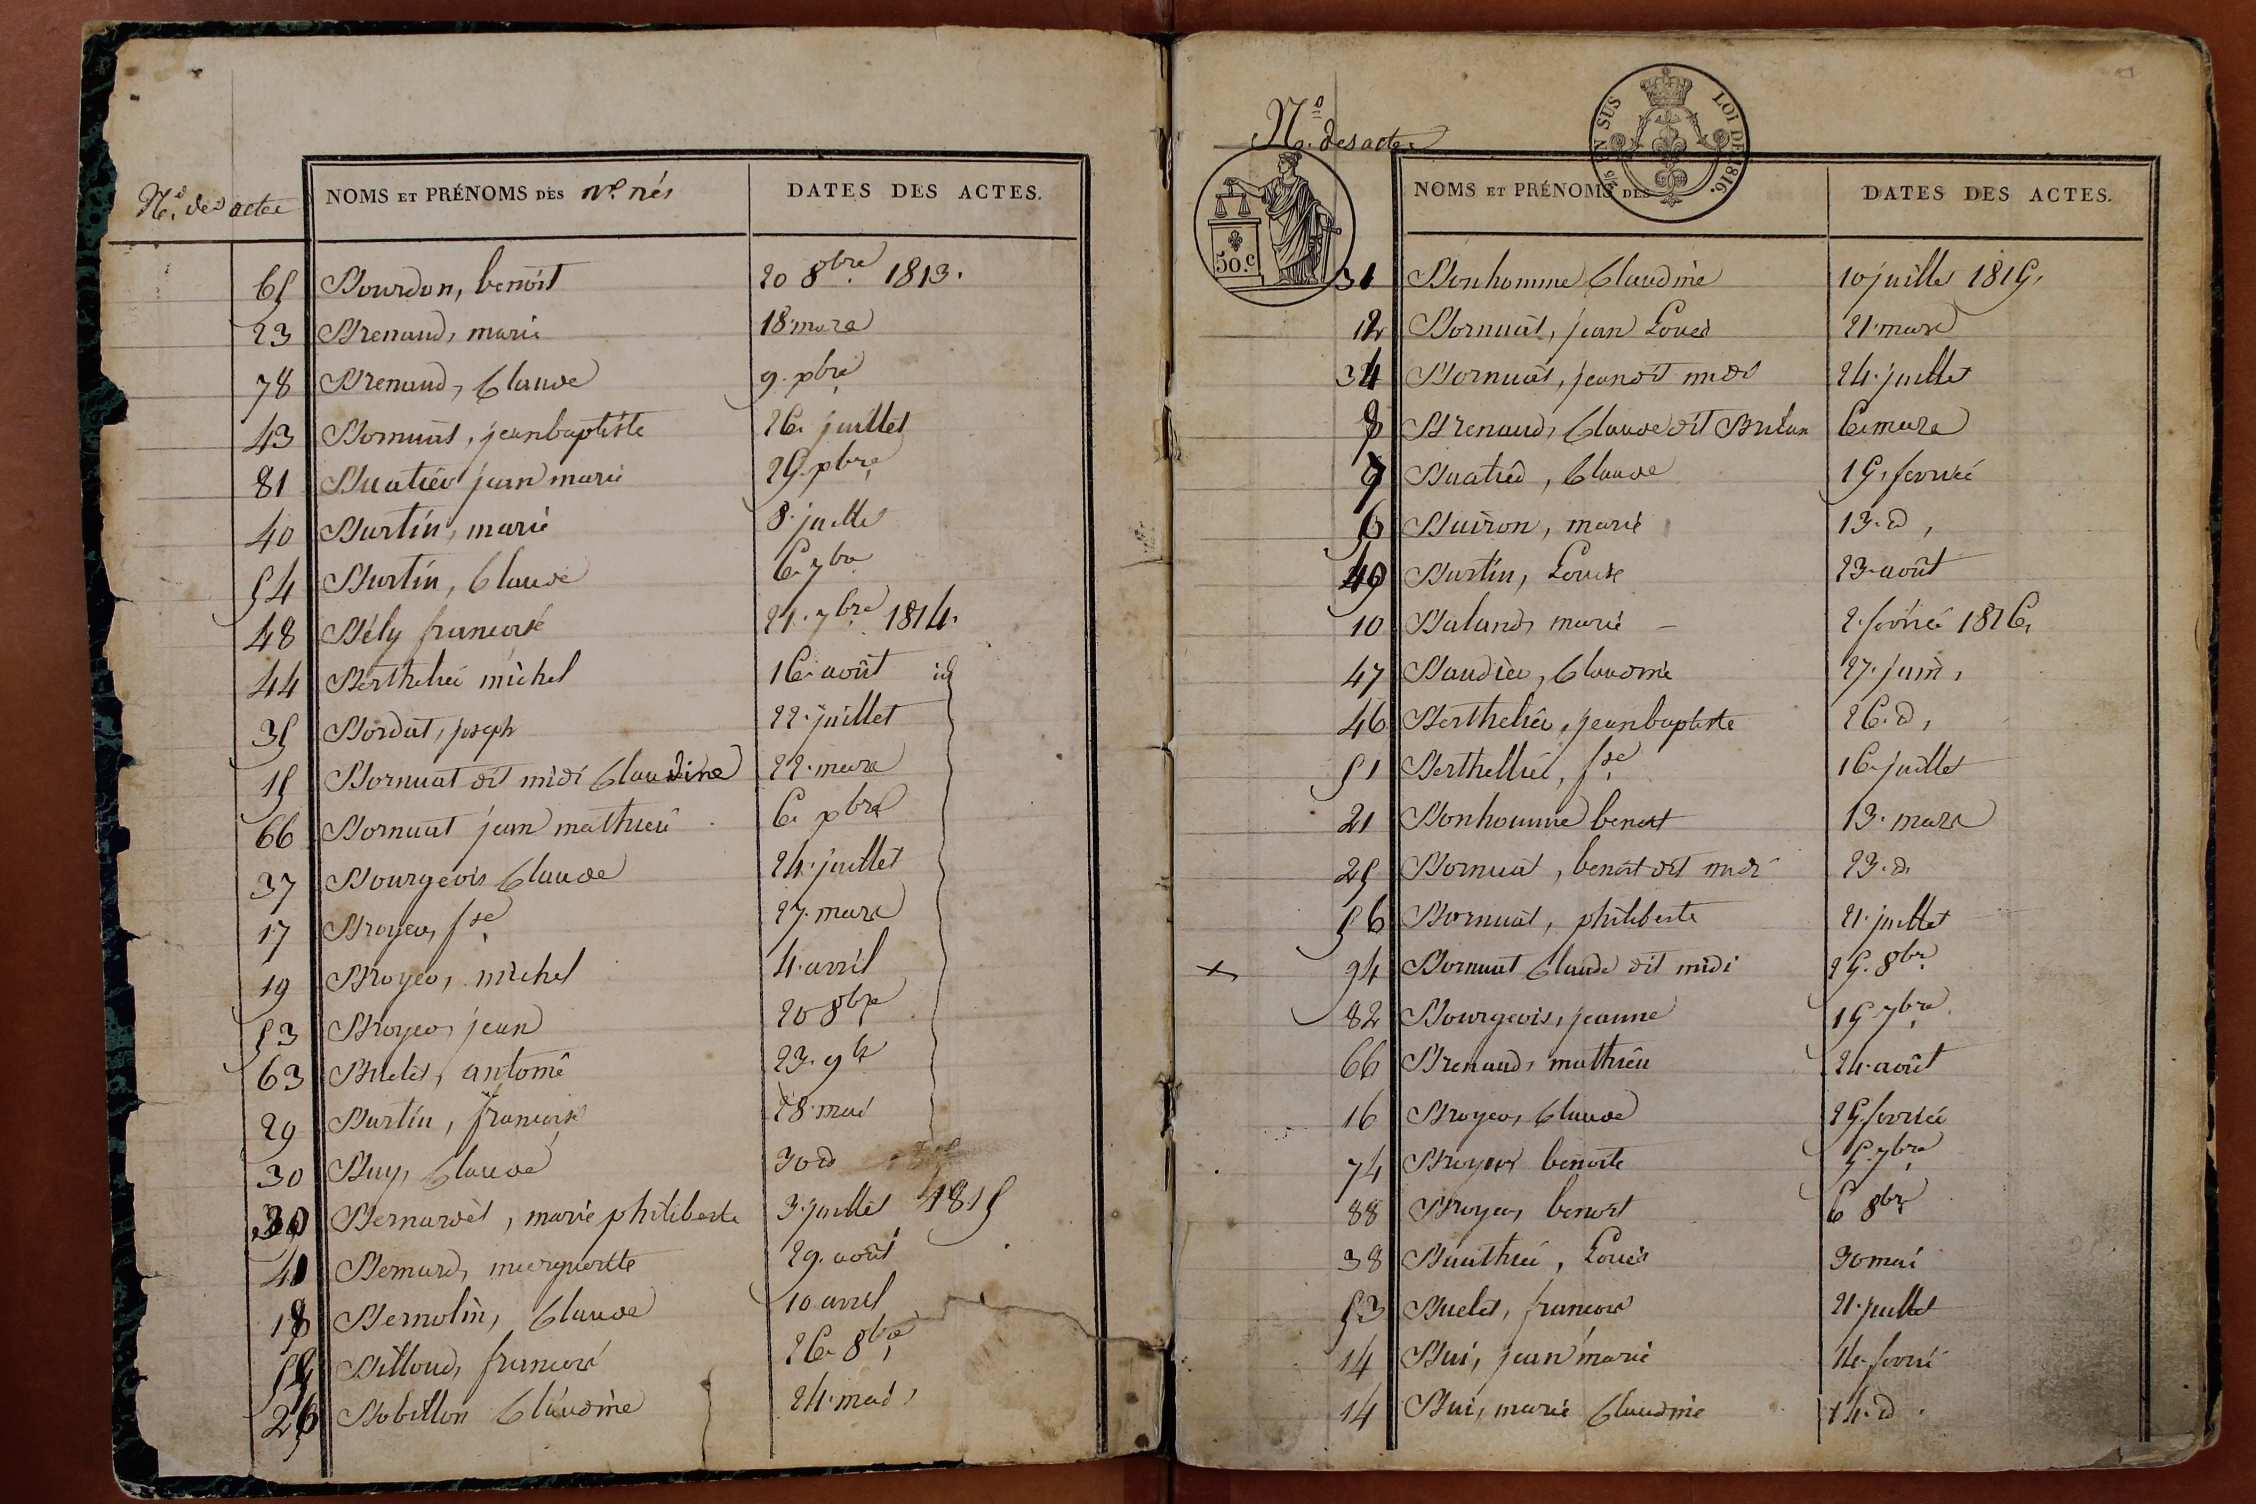 Nos des actes
NOMS ET PRÉNOMS DES Nx nés
DATES DES ACTES.
65 Bourdon, benoit 20 8bre 1813.
23 Brenaud, marie 18 mars
78 Brenaud, Claude 9. xbre
43 Bornuat, jean baptiste 26 juillet
81 Buatier jean marie 25. xbre
40 Burtin, marie 8. juillet
54 Burtin, Claude 6. 7bre
48 Bély françoise 21. 7bre 1814.
44 Berthelier michel 16. août id
35 Bordat, joseph 22. juillet
15 Bornuat dit midi Claudine 22. mars
66 Bornuat jean mathieu 6 xbre
37 Bourgeois Claude 24. juillet
17 Broyer, fse 27. mars
19 Broyer, michel 4. avril
53 Broyer, jean 20 8bre
63 Buelet, antoine 23. 9bre
29 Burtin, françoise 28. mai
30 Buy, Claude 30 d
30 Bernardet, marie philiberte 3. juillet 1815
41 Bernard, marguerite 29. août
18 Bernolin, Claude 10 avril
Billoud, françois 26. 8bre
26 Bobillon Claudine 24. mai,
Nos des actes
SUS
LOI DE 1816.
50.c
NOMS ET PRÉNOMS DES
DATES DES ACTES.
31 Bonhomme Claudine 10 juillet 1815,
12 Bornuat, jean Louis 21. mars
34 Bornuat, jean dit midi 24. juillet
8 Brenaud, Claude dit 6. mars
7 Buatier, Claude 15, fevrier
6 Buiron, marie 13. d,
40 Burtin, Louise 23. août
10 Baland, marie – 2. fevrier 1816,
47 Baudier, Claudine 27. juin,
46 Berthelier, jean baptiste 26. d,
51 Berthellier, fse 16. juillet
21 Bonhomme benoit 13. mars
25 Bornuat, benoit dit midi 23. d.
56 Bornuat, philiberte 21. juillet
x 94 Bornuat Claude dit midi 25. 8bre
82 Bourgeois, jeanne 15 7bre
66 Brenaud, mathieu 24. août
16 Broyer, Claude 25 fevrier
74 Broyer benoite 5. 7bre
88 Broyer, benoit 6 8bre
38 Buathier, Louis 30 mai
53 Buelet, françois 21. juillet
14 Bui, jean marie 14. fevrier
14 Bui, marie Claudine 14. d.